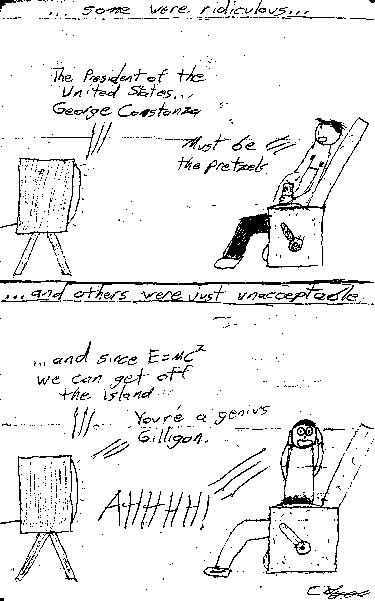 ... some were ridiculous...
The President of the
United States...
George Constanza
Must be
the pretzels
...and others were just unacceptable.
...and since E=mc²
we can get off
the island...
You're a genius
Gilligan.
AHHHH!